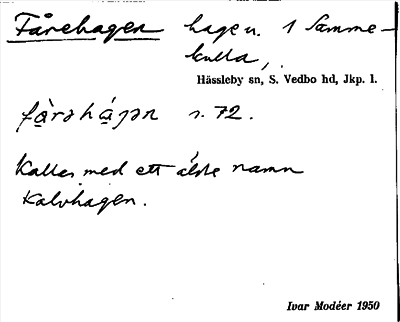 Fårehagen hage u. 1 Samme-
kulla,
Hässleby sn, S. Vedbo hd, Jkp. l.
få̱̀rəhá̱gən s. 72.
Kallas med ett äldre namn
Kalvhagen.
Ivar Modéer 1950